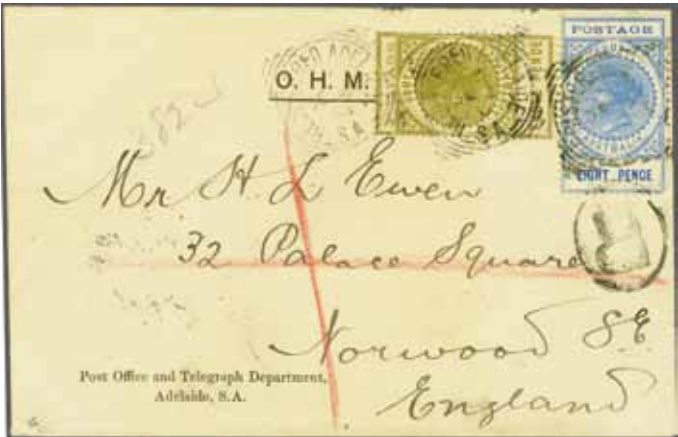 POSTAGE
EIGHT PENCE
O. H. M.
R
Mr H. L Ewen
32 Palace Square
Norwood S.E
England
Post Office and Telegraph Department,
Adelaide, S.A.